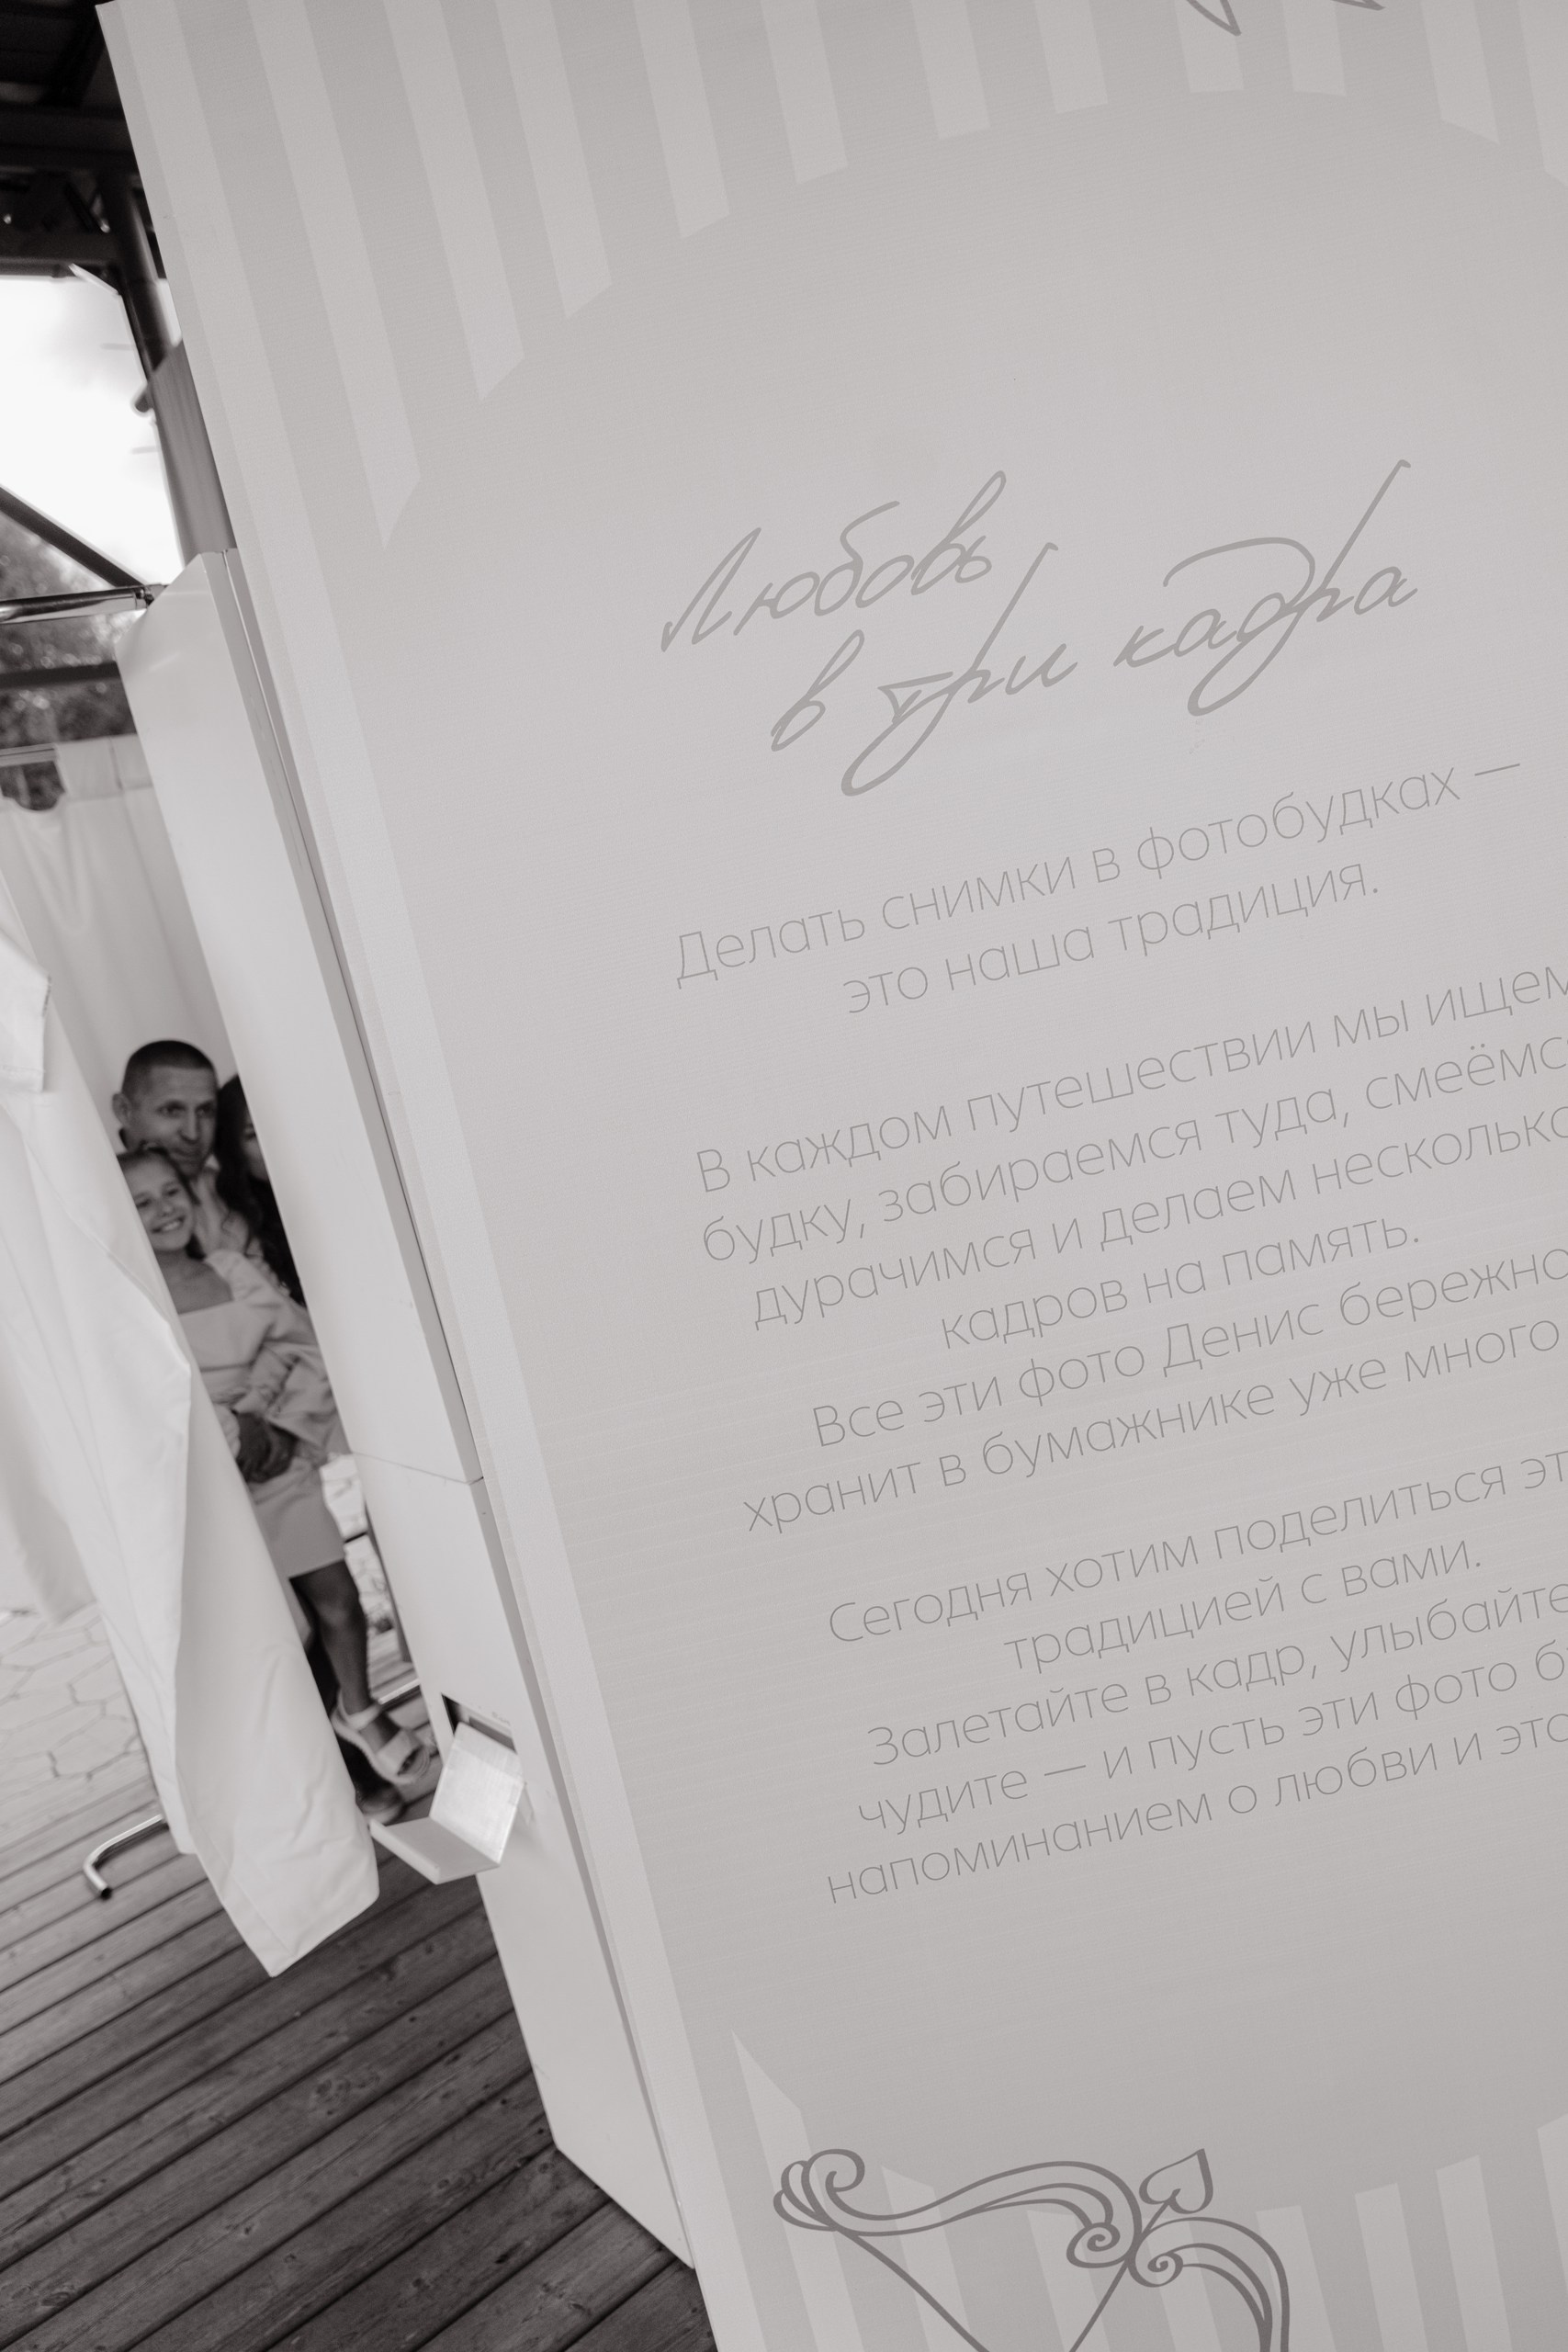 Любовь
в три кадра
Делать снимки в фотобудках —
это наша традиция.
В каждом путешествии мы ищем
будку, забираемся туда, смеёмс
дурачимся и делаем несколько
кадров на память.
Все эти фото Денис бережно
хранит в бумажнике уже много
Сегодня хотим поделиться эт
традицией с вами.
Залетайте в кадр, улыбайте
чудите — и пусть эти фото б
напоминанием о любви и это